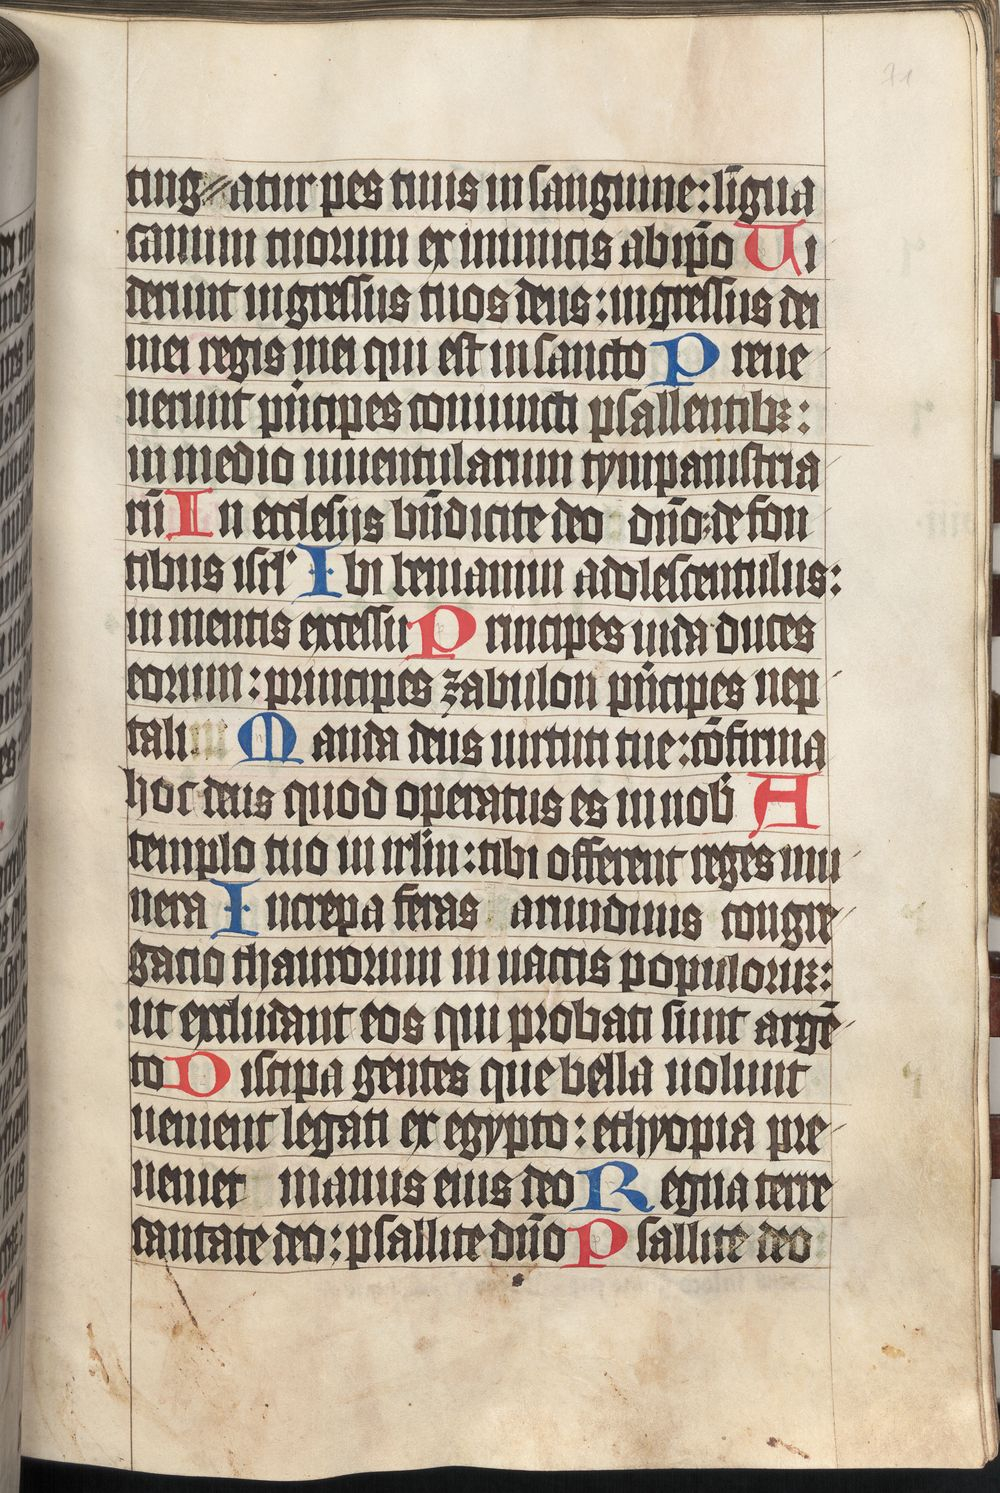 71
ting atur pes tuus in sanguine : līgua
canum tuorum ex inimicis ab ip̄o Ui
derunt ingressus tuos deus : ingressus dei
mei regis mei qui est in sancto Preue
nerunt pͥncipes coniuncti psallentibꝫ :
in medio iuuencularum tympanistria
rū In ecclesijs bn̄dicite deo dn̄o : de fon
tibus isrl' Ibi beniamin adolescentulus :
in mentis excessu Principes iuda duces
eorum : principes zabulon pͥncipes nep
tali Manda deus uirtuti tue : cōfirma
hoc deus quod operatus es in nob̄ A
templo tuo in irl̄m : tibi offerent reges mu
nera Increpa feras arundinis congre
gatio thaurorum in uaccis populoruꝫ :
ut excludant eos qui probati sunt argē
to Discipa gentes que bella uolunt
uenient legati ex egypto : ethyopia pre
ueniet manus eius deo Regna terre
cantate deo : psallite dn̄o Psallite deo